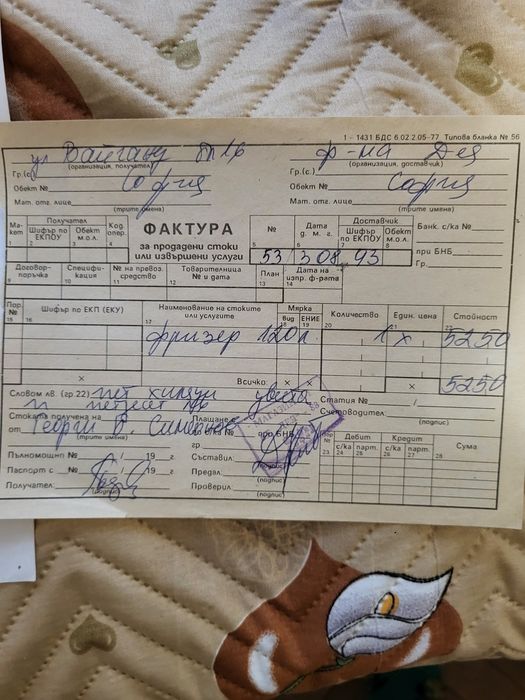 1 – 1431 БДС 6.02 2.05–77, Типова бланка № 56
ул. Вайганд бл.
(организация, получател)
ф-ма Дея
(организация, доставчик)
Гр.(с.) София
Гр.(с.) София
Обект №
Обект №
Мат. отг. лице
(трите имена)
Мат. отг. лице
(трите имена)
Макет
Получател
Код. опер.
ФАКТУРА
за продадени стоки
или извършени услуги
№
Дата
д. м. г.
Доставчик
Банк. с/ка №
Шифър по ЕКПОУ
Обект м.о.л.
Шифър по ЕКПОУ
Обект м.о.л.
при БНБ
1 2 3 4 5 6 7 8
53 3 08. 93
Гр.
Договор-поръчка
Спецификация
№ на превоз. средство
Товарителница № и дата
План
Дата на изпр. ф-рата
9 10 11 12 13 14
Пор. №
Шифър по ЕКП (ЕКУ)
Наименование на стоките или услугите
Мярка
Вид
ЕНИЕ
Количество
Един. цена
Стойност
фризер 120 л. 1 х 5250
х Всичко: х х 5250
Словом лв. (гр.22) пет хиляди двеста
и петдесет лв
Статия № /
Стоката получена на
Плащане
Счетоводител:
(подпис)
от Георги
(трите имена)
с/ка № при БНБ
гр.
Дебит
Кредит
Сума
с/ка парт. с/ка парт.
23 24 25 26 27 28
Пълномощно № / 19 г
Съставил:
(подпис)
Паспорт с № / 19 г
Предал:
(подпис)
Получател:
(подпис)
Проверил:
(подпис)